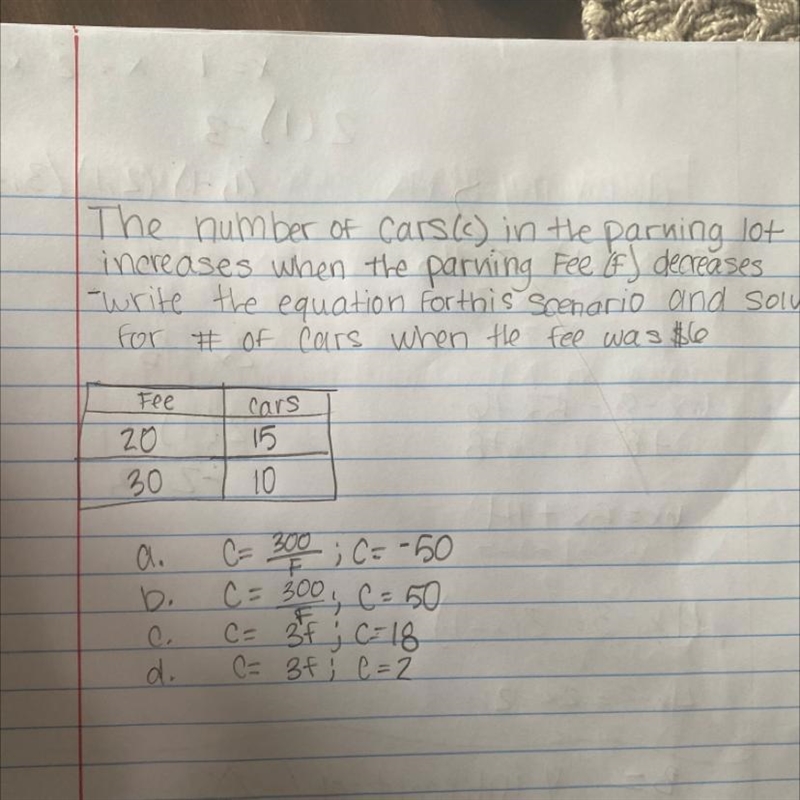 The number of cars(c) in the parking lot
increases when the parking Fee (f) decreases
-write the equation forthis scenario and solv
for # of Cars when the fee was $6
Fee cars
20 15
30 10
a. C= 300/F ; C= -50
b. C= 300/F ; C= 50
c. C= 3f ; C=18
d. C= 3f ; C=2